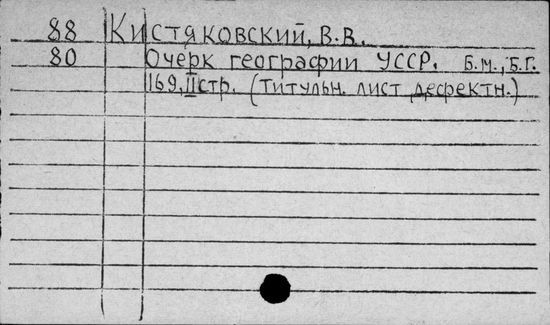 88 Кистяковский, В.В.
80 Очерк географии УССР. Б.м., Б.г.
169, II стр. (Титульн. лист дефектн.)